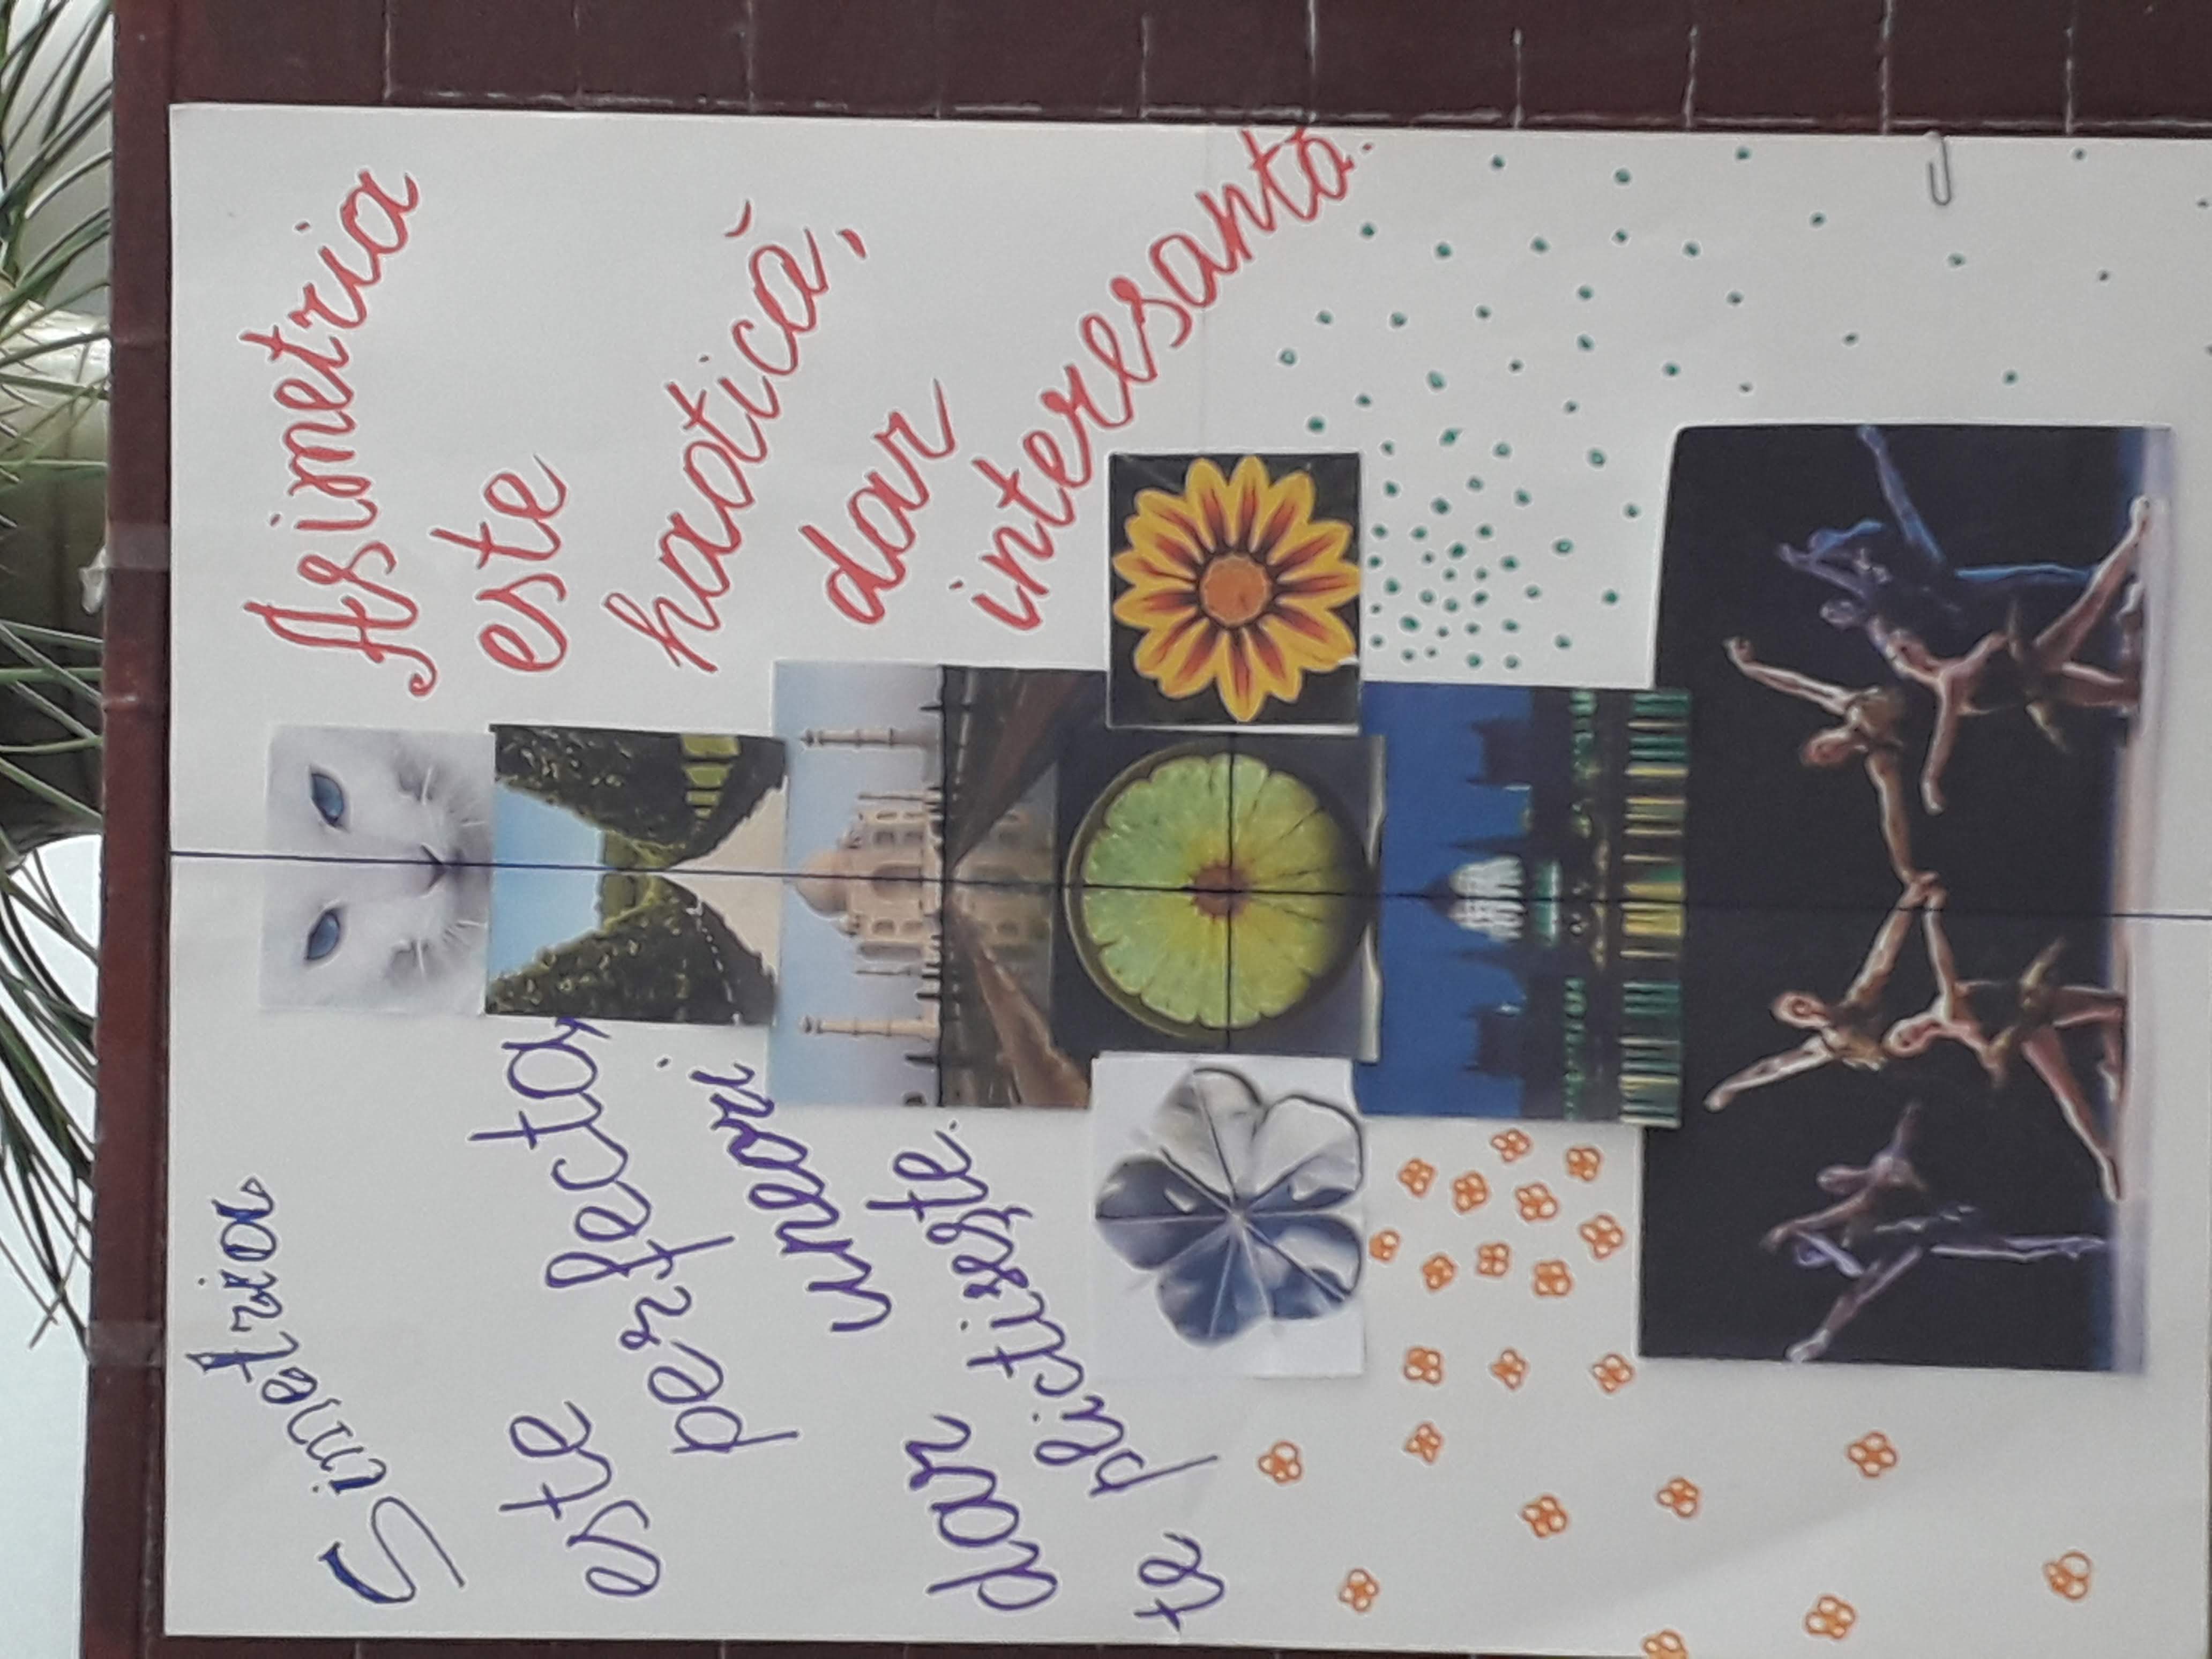 Simetria
este perfectă,
uneori
dar
te plictisește.
Asimetria
este
haotică,
dar
interesantă.